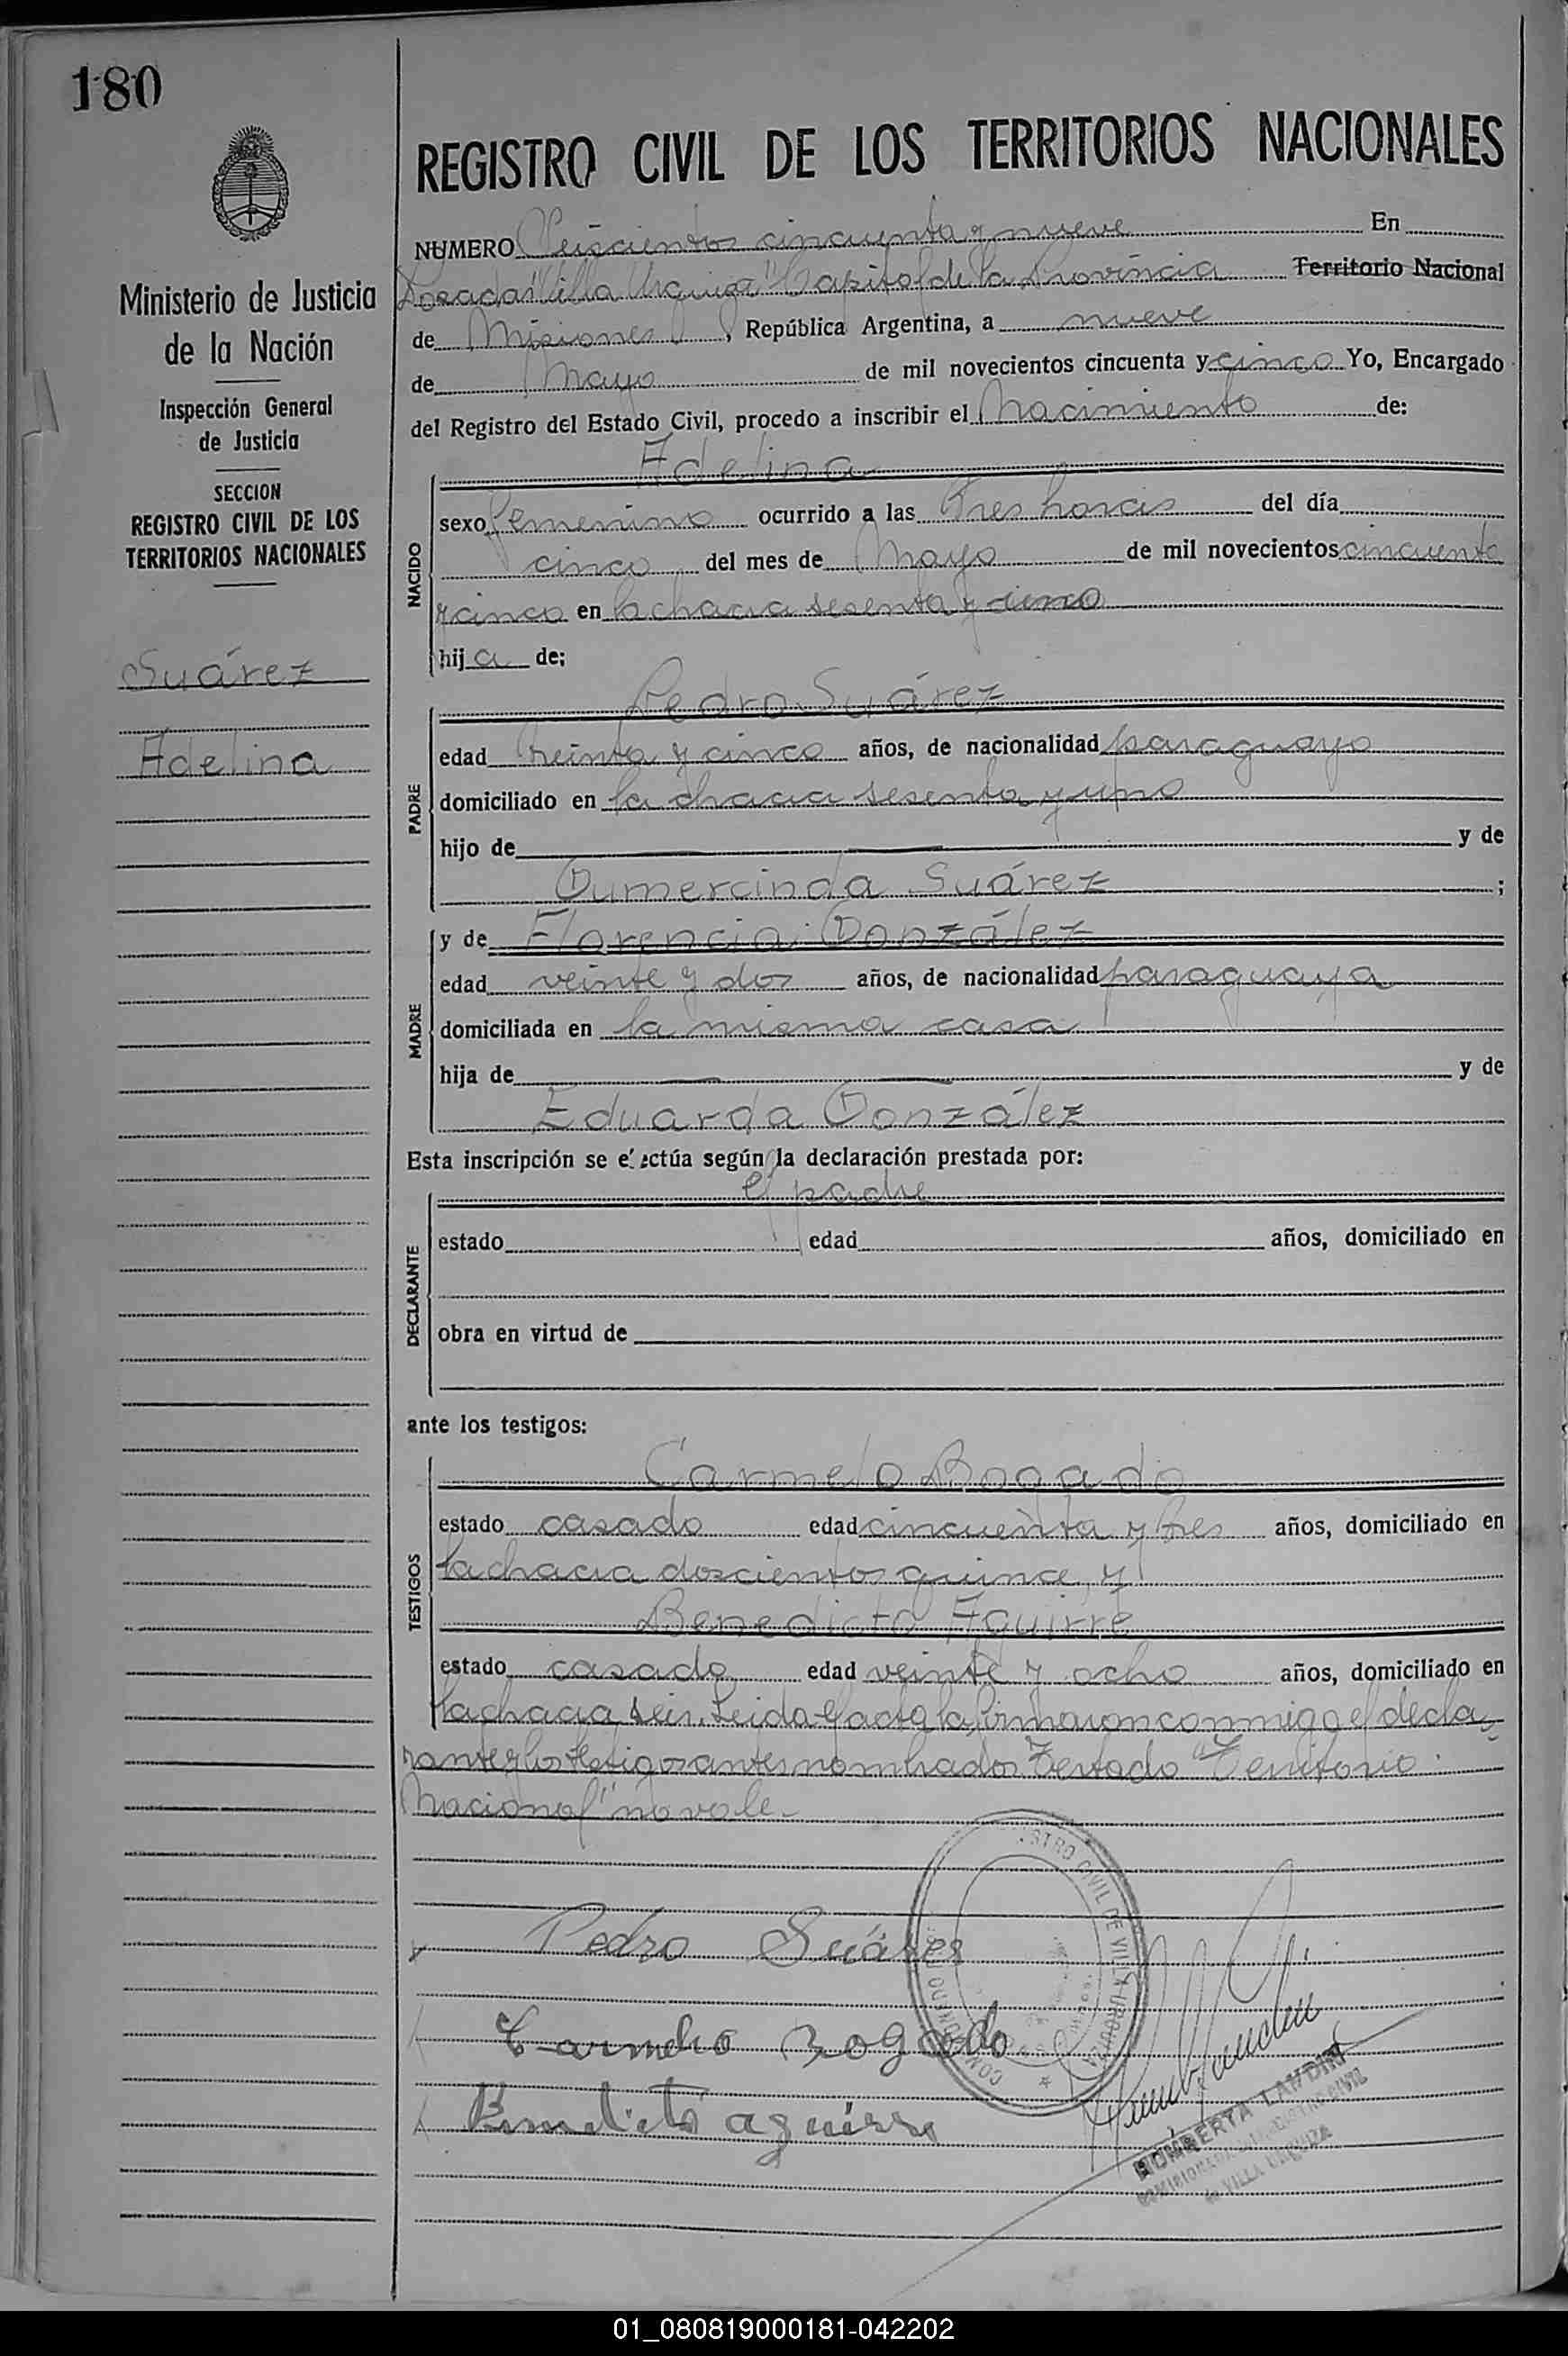 180
Ministerio de Justicia
de la Nación
Inspección General
de Justicia
SECCION
REGISTRO CIVIL DE LOS
TERRITORIOS NACIONALES
Suárez
Adelina
REGISTRO CIVIL DE LOS TERRITORIOS NACIONALES
NUMERO Seiscientos cincuenta y nueve En
Posadas "Villa Urquiza" Capital de la Provincia Territorio Nacional
de Misiones, República Argentina, a nueve
de Mayo de mil novecientos cincuenta y cinco Yo, Encargado
del Registro del Estado Civil, procedo a inscribir el Nacimiento de:
Adelina
NACIDO
sexo femenino ocurrido a las tres horas del día
cinco del mes de Mayo de mil novecientos cincuenta
y cinco en la chacra sesenta y
hija de:
Pedro Suárez
PADRE
edad treinta y cinco años, de nacionalidad paraguayo
domiciliado en la chacra sesenta y uno
hijo de y de
Gumercinda Suárez ;
y de Florencia González
MADRE
edad veinte y dos años, de nacionalidad paraguaya
domiciliada en la misma casa
hija de y de
Eduarda González
Esta inscripción se efectúa según la declaración prestada por:
el padre
DECLARANTE
estado edad años, domiciliado en
obra en virtud de
ante los testigos:
Carmelo Bogado
TESTIGOS
estado casado edad cincuenta y tres años, domiciliado en
la chacra doscientos quince, y
Benedicto Aguirre
estado casado edad veinte y ocho años, domiciliado en
la chacra seis. Leida el acta la firmaron conmigo el decla
rante y los testigos antes nombrados. Testado "Territorio
Nacional" no vale.-
Pedro Suáres
Carmelo Bogado
Benedicto aguirre
CIVIL DE VILLA URQUIZA
HOMBERTA LANDINI
de VILLA URQUIZA
01_080819000181-042202